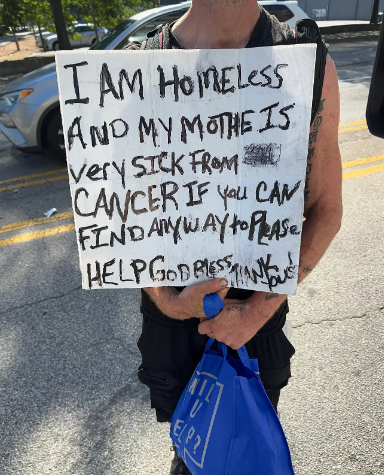 I AM HOMELESS
AND MY MOTHE IS
very SICK FROM
CANCER IF you CAN
FIND ANY WAY to PLEASE
HELP GOD BLESS THANK YOU!
WIL
U
ELP?